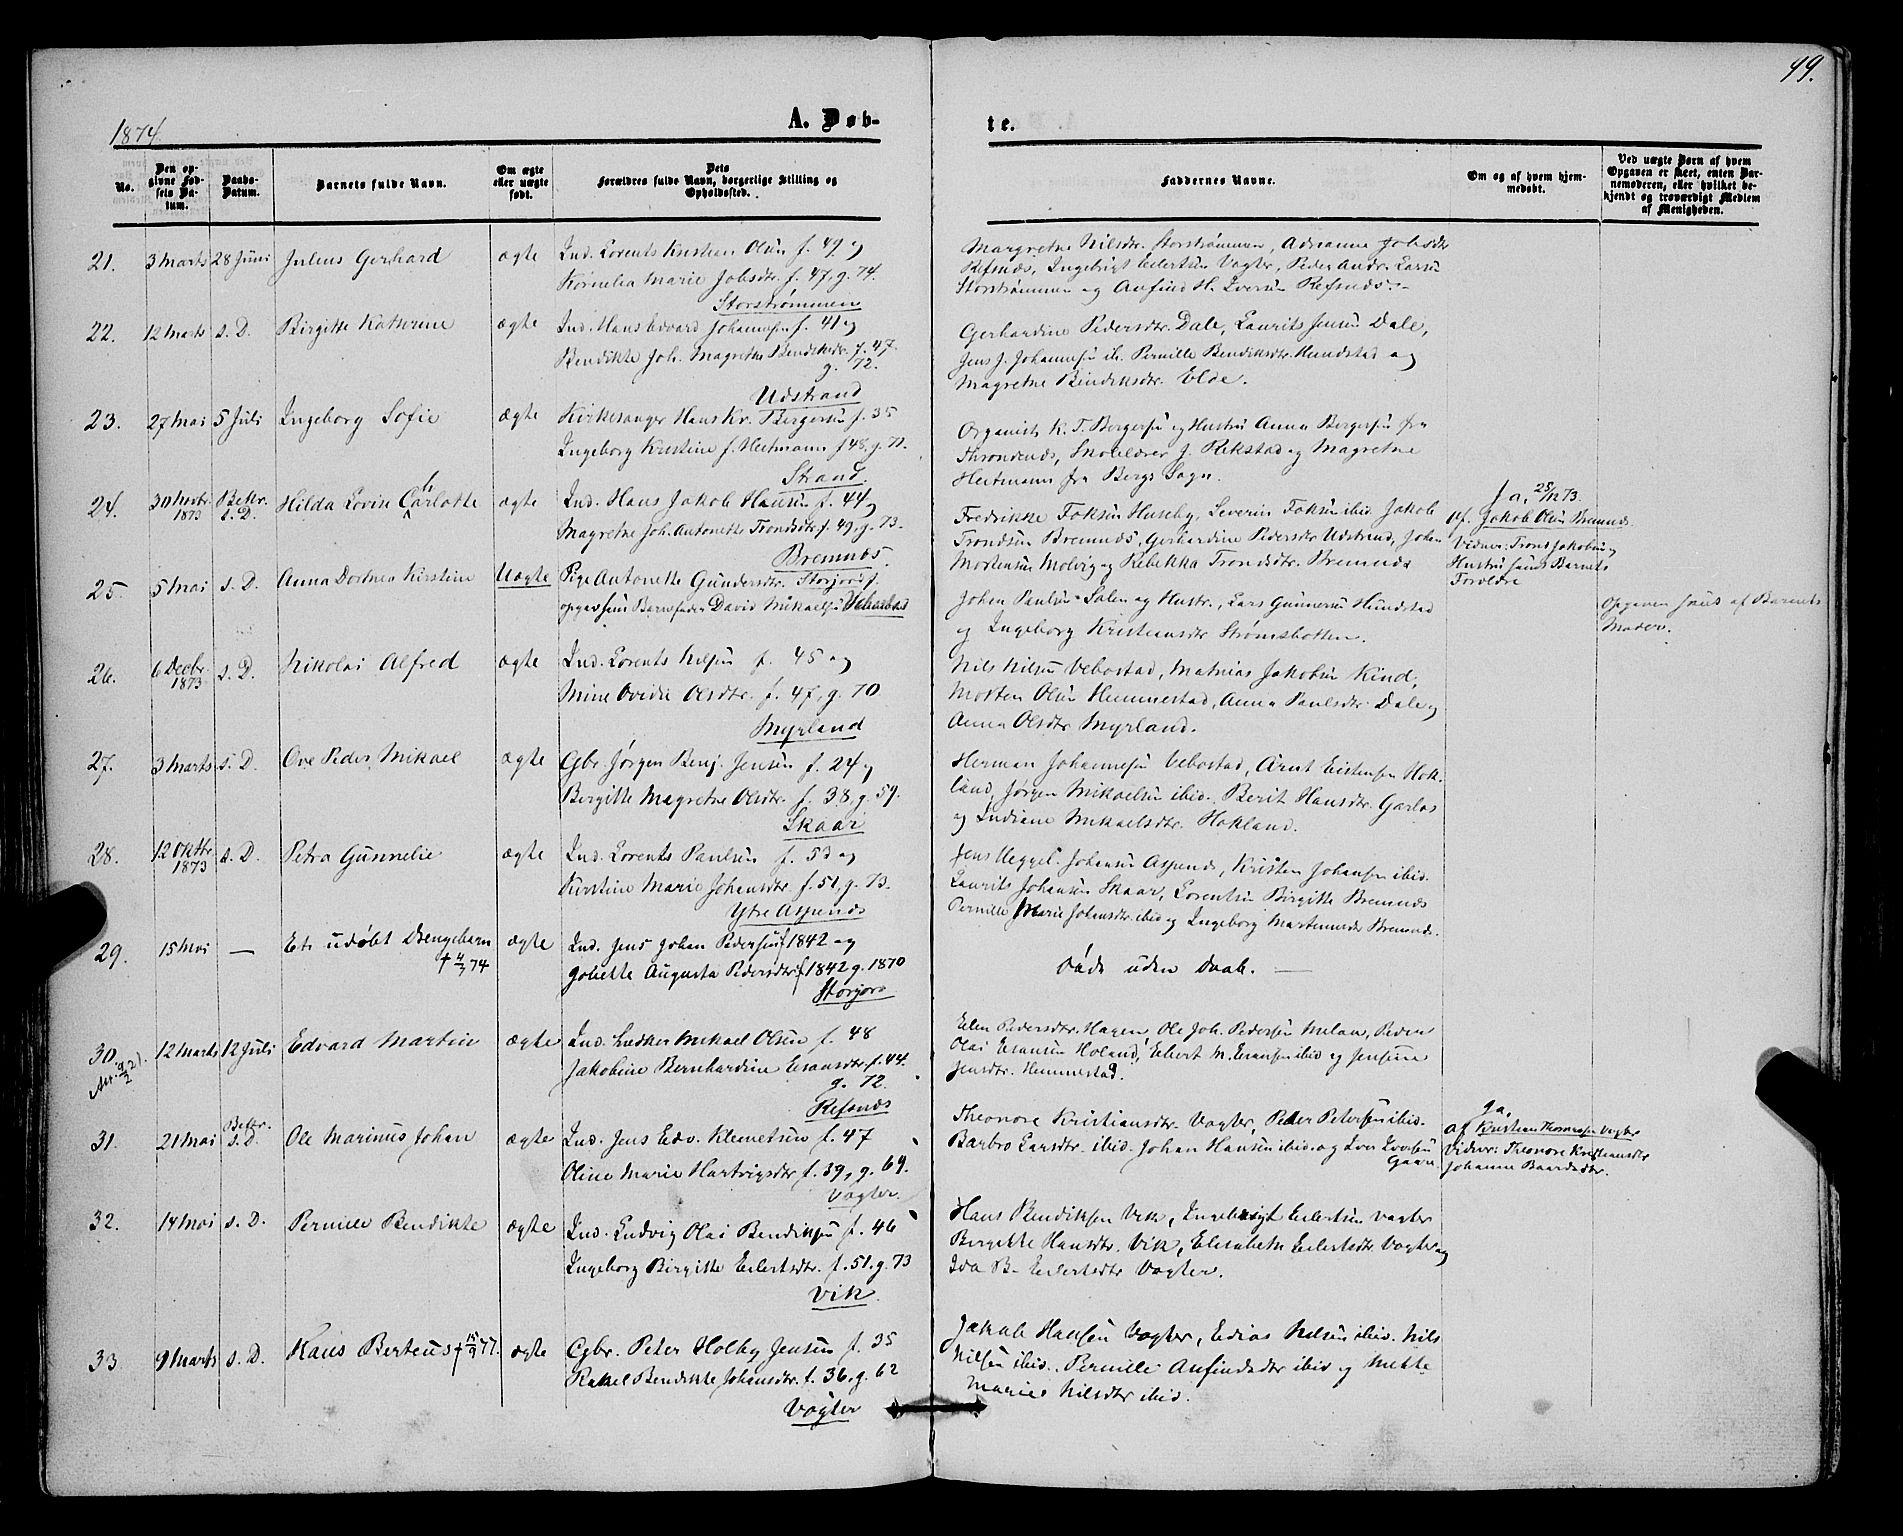 49.
1874.
A. Døb-
te.
No.
Den opgivne Fødsels Datum.
Daabs-Datum.
Barnets fulde Navn.
Om ægte eller uægte født.
Dets Forældres fulde Navn, borgerlige Stilling og Opholdssted.
Faddernes Navne.
Om og af hvem hjemmedøbt.
Ved uægte Børn af hvem Opgaven er skeet, enten Barnemoderen, eller hvilket bekjendt og troværdigt Medlem af Menigheden.
21. 3 Marts 28 Juni Julius Gerhard ægte Ind. Lorents Kristian Olsen f. 49 og
Kornelia Marie Jobsdr. f. 47, g. 74.
Storstrømmen
Margrethe Nilsdtr. Storstrømmen, Adrianne Jobsdtr
Refsnæs, Ingebrigt Eilertsen Vagter, Peder Andr. Larsen
Storstrømmen og Anfind H. Iversen Refsnæs.
22. 12 Marts s. D. Birgitte Katherine ægte Ind. Hans Edvard Johannesen f. 41 og
Bendikte Joh. Magrethe Bendiksdr. f. 47.
g. 72.
Udstrand
Gerhardine Pedersdtr. Dale, Laurits Jensen Dale,
Jens J. Johannesen ib. Pernille Bendiksdtr. Hundstad og
Magrethe Bendiksdtr. Elde.
23. 27 Mai 5 Juli Ingeborg Sofie ægte Kirkesanger Hans Kr. Bergersen f. 35
Ingeborg Kristine f. Heitmann f. 48, g. 72.
Strand.
Organist K. T. Bergersen og Hustru Anna Bergersen fra
Throndenæs, Skolelærer J. Rekstad og Magrethe
Heitmann fra Bergs Sogn.
24. 30 Novbr. 1873 Bekr. s. D. Hilda Lovise Charlotte ægte Ind. Hans Jakob Hansen f. 44 og
Magrethe Joh. Antonette Trondsdtr. f. 49, g. 73.
Bremnæs.
Fredrikke Foksen Huseby, Severin Foksen ibid. Jakob
Trondsen Bremnæs, Gerhardine Pedersdtr Udstrand, Johan
Mortensen Molvig og Rebekka Trondsdtr. Bremnæs
Ja, 25/12 73.
af Jakob Olsen Bremnæs.
Vidner: Trons Jakobsen og
Hustru samt Barnets
Forældre
25. 5 Mai s. D. Anna Dorthea Kirstine Uægte Pige Antonette Gundersdtr. Storjord f.
opgav som Barnefader David Mikaelsen Vebostad
Johan Paulsen Salen og Hustr., Lars Gunnersen Hundstad
og Ingeborg Kristiansdtr Strømsbotten.
Opgaven skeet af Barnets
Moder.
26. 6 Decbr. 1873 s. D. Nikolai Alfred ægte Ind. Lorents Nilsen f. 45 og
Mine Ovidie Olsdtr. f. 47, g. 70
Myrland
Nils Nilsen Vebostad, Mathias Jakobsen Kind,
Morten Olsen Hemmestad, Anna Paulsdtr. Dale og
Anna Olsdtr Myrland.
27. 3 Marts s. D. Ove Peder Mikael ægte Gbr. Jørgen Benj. Jensen f. 24 og
Birgitte Magrethe Olsdtr. f. 38, g. 59.
Skaar
Herman Johannesen Vebostad, Arnt Eistensen Hok-
land, Jørgen Mikaelsen ibid. Berit Hansdtr. Garlas
og Indiane Mikaelsdtr. Hokland.
28. 12 Oktbr. 1873 s. D. Petra Gunnelie ægte Ind. Lorents Paulsen f. 53 og
Kirstine Marie Johansdtr f. 51, g. 73.
Ytre Aspenæs
Jens Heggel. Johansen Aspenæs, Kristen Johansen ibid.
Laurits Johansen Skaar, Lorentsen Birgitte Bremnæs
Pernille Marie Johansdtr. ibid og Ingeborg Martensdtr Bremnæs.
29. 15 Mai — Et udøbt Drengebarn † 4/7 74 ægte Ind. Jens Johan Pedersen f 1842 og
Joliette Augusta Pedersdtr f 1842 g. 1870
Storjord
Døde uden Daab. —
30. 12 Marts 12 Juli Edvard Martin ægte Ind. Lydker Mikael Olsen f. 48
Jakobine Bernhardine Esansdtr. f. 44.
g. 72.
Refsnæs
Elen Pedersdtr. Hagen, Ole Joh. Pedersen Melan, Peder
Olai Esansen Holand, Eilert M. Esansen ibid og Jensine
Jensdtr. Hemmestad.
31. 21 Mai Bekr. s. D. Ole Marinus Johan ægte Ind. Jens Edv. Klemetsen f. 47
Oline Marie Hartvigsdtr f. 39, g. 69.
Vagter
Theonore Kristiansdtr. Vagter, Peder Petersen ibid.
Barbro Larsdtr. ibid. Johan Hansen ibid. og Iver Iversen
Gaare
Ja,
af Kristian Thomassen Vagter
Vidner: Theonore Kristiansdtr
Johanna Baardsdtr.
32. 14 Mai s. D. Pernille Bendikte ægte Ind. Ludvig Olai Bendiksen f. 46
Ingeborg Birgitte Eilertsdtr. f. 51. g. 73
Vik
Hans Bendiksen Vik, Ingebrigt Eilertsen Vagter
Birgitte Hansdtr. Vik, Elisabeth Eilertsdtr. Vagter og
Ida B. Eilertsdtr Vagter.
33 9 Marts s. D. Kaus Berteus † 15/9 77. ægte Gbr. Peter Holby Jensen f. 35
Rakel Bendikte Johansdtr. f. 36, g. 62
Vagter
Jakob Hansen Vagter, Edias Nilsen ibid. Nils
Nilsen ibid. Pernille Anfindsdtr ibid og Mette
Marie Nilsdtr ibid.